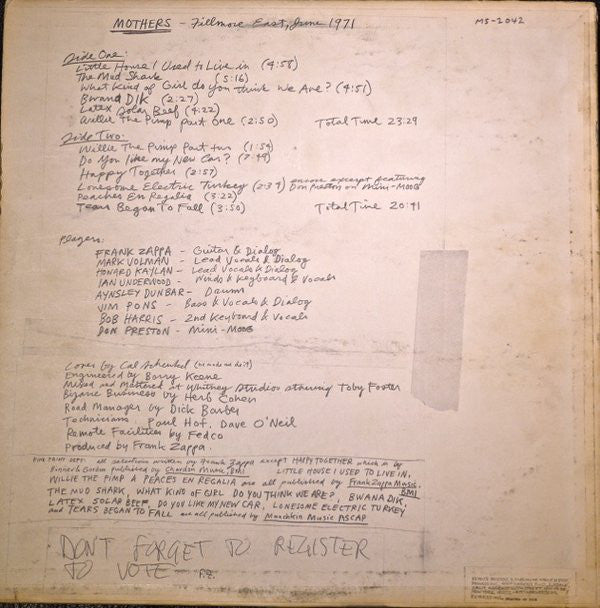 MOTHERS - Fillmore East, June 1971
MS-2042
Side One:
Little House I Used to Live in (4:58)
The Mud Shark (5:16)
What Kind of Girl do you think We Are? (4:51)
Bwana DIK (2:27)
Latex Solar Beef (4:22)
Willie The Pimp Part One (2:50) Total Time 23:29
Side Two:
Willie The Pimp Part two (1:54)
Do You like my New Car? (7:49)
Happy Together (2:57)
Lonesome Electric Turkey (2:39) encore excerpt featuring Don Preston on Mini-MOOG
Peaches En Regalia (3:22)
Tears Began To Fall (3:50) Total Time 20:41
Players:
FRANK ZAPPA - Guitar & Dialog
MARK VOLMAN - Lead Vocals & Dialog
HOWARD KAYLAN - Lead Vocals & Dialog
IAN UNDERWOOD - Winds & Keyboard & Vocals
AYNSLEY DUNBAR - Drums
JIM PONS - Bass & Vocals & Dialog
BOB HARRIS - 2nd Keyboard & Vocals
DON PRESTON - Mini-MOOG
Cover by Cal Schenkel (he made me do it)
Engineered by Barry Keene
Mixed and Mastered at Whitney Studios starring Toby Foster
Bizarre Business by Herb Cohen
Road Manager by Dick Barber
Technicians Paul Hof, Dave O'Neil
Remote Facilities by Fedco
Produced by Frank Zappa.
FINE PRINT DEPT: all selections written by Frank Zappa except HAPPY TOGETHER which is by
published by Chardon Music, BMI LITTLE HOUSE I USED TO LIVE IN,
WILLIE THE PIMP & PEACES EN REGALIA are all published by Frank Zappa Music, BMI
THE MUD SHARK, WHAT KIND OF GIRL DO YOU THINK WE ARE?, BWANA DIK,
LATEX SOLAR BEEF, DO YOU LIKE MY NEW CAR, LONESOME ELECTRIC TURKEY
and TEARS BEGAN TO FALL are all published by Munchkin Music ASCAP
DON'T FORGET TO REGISTER
TO VOTE